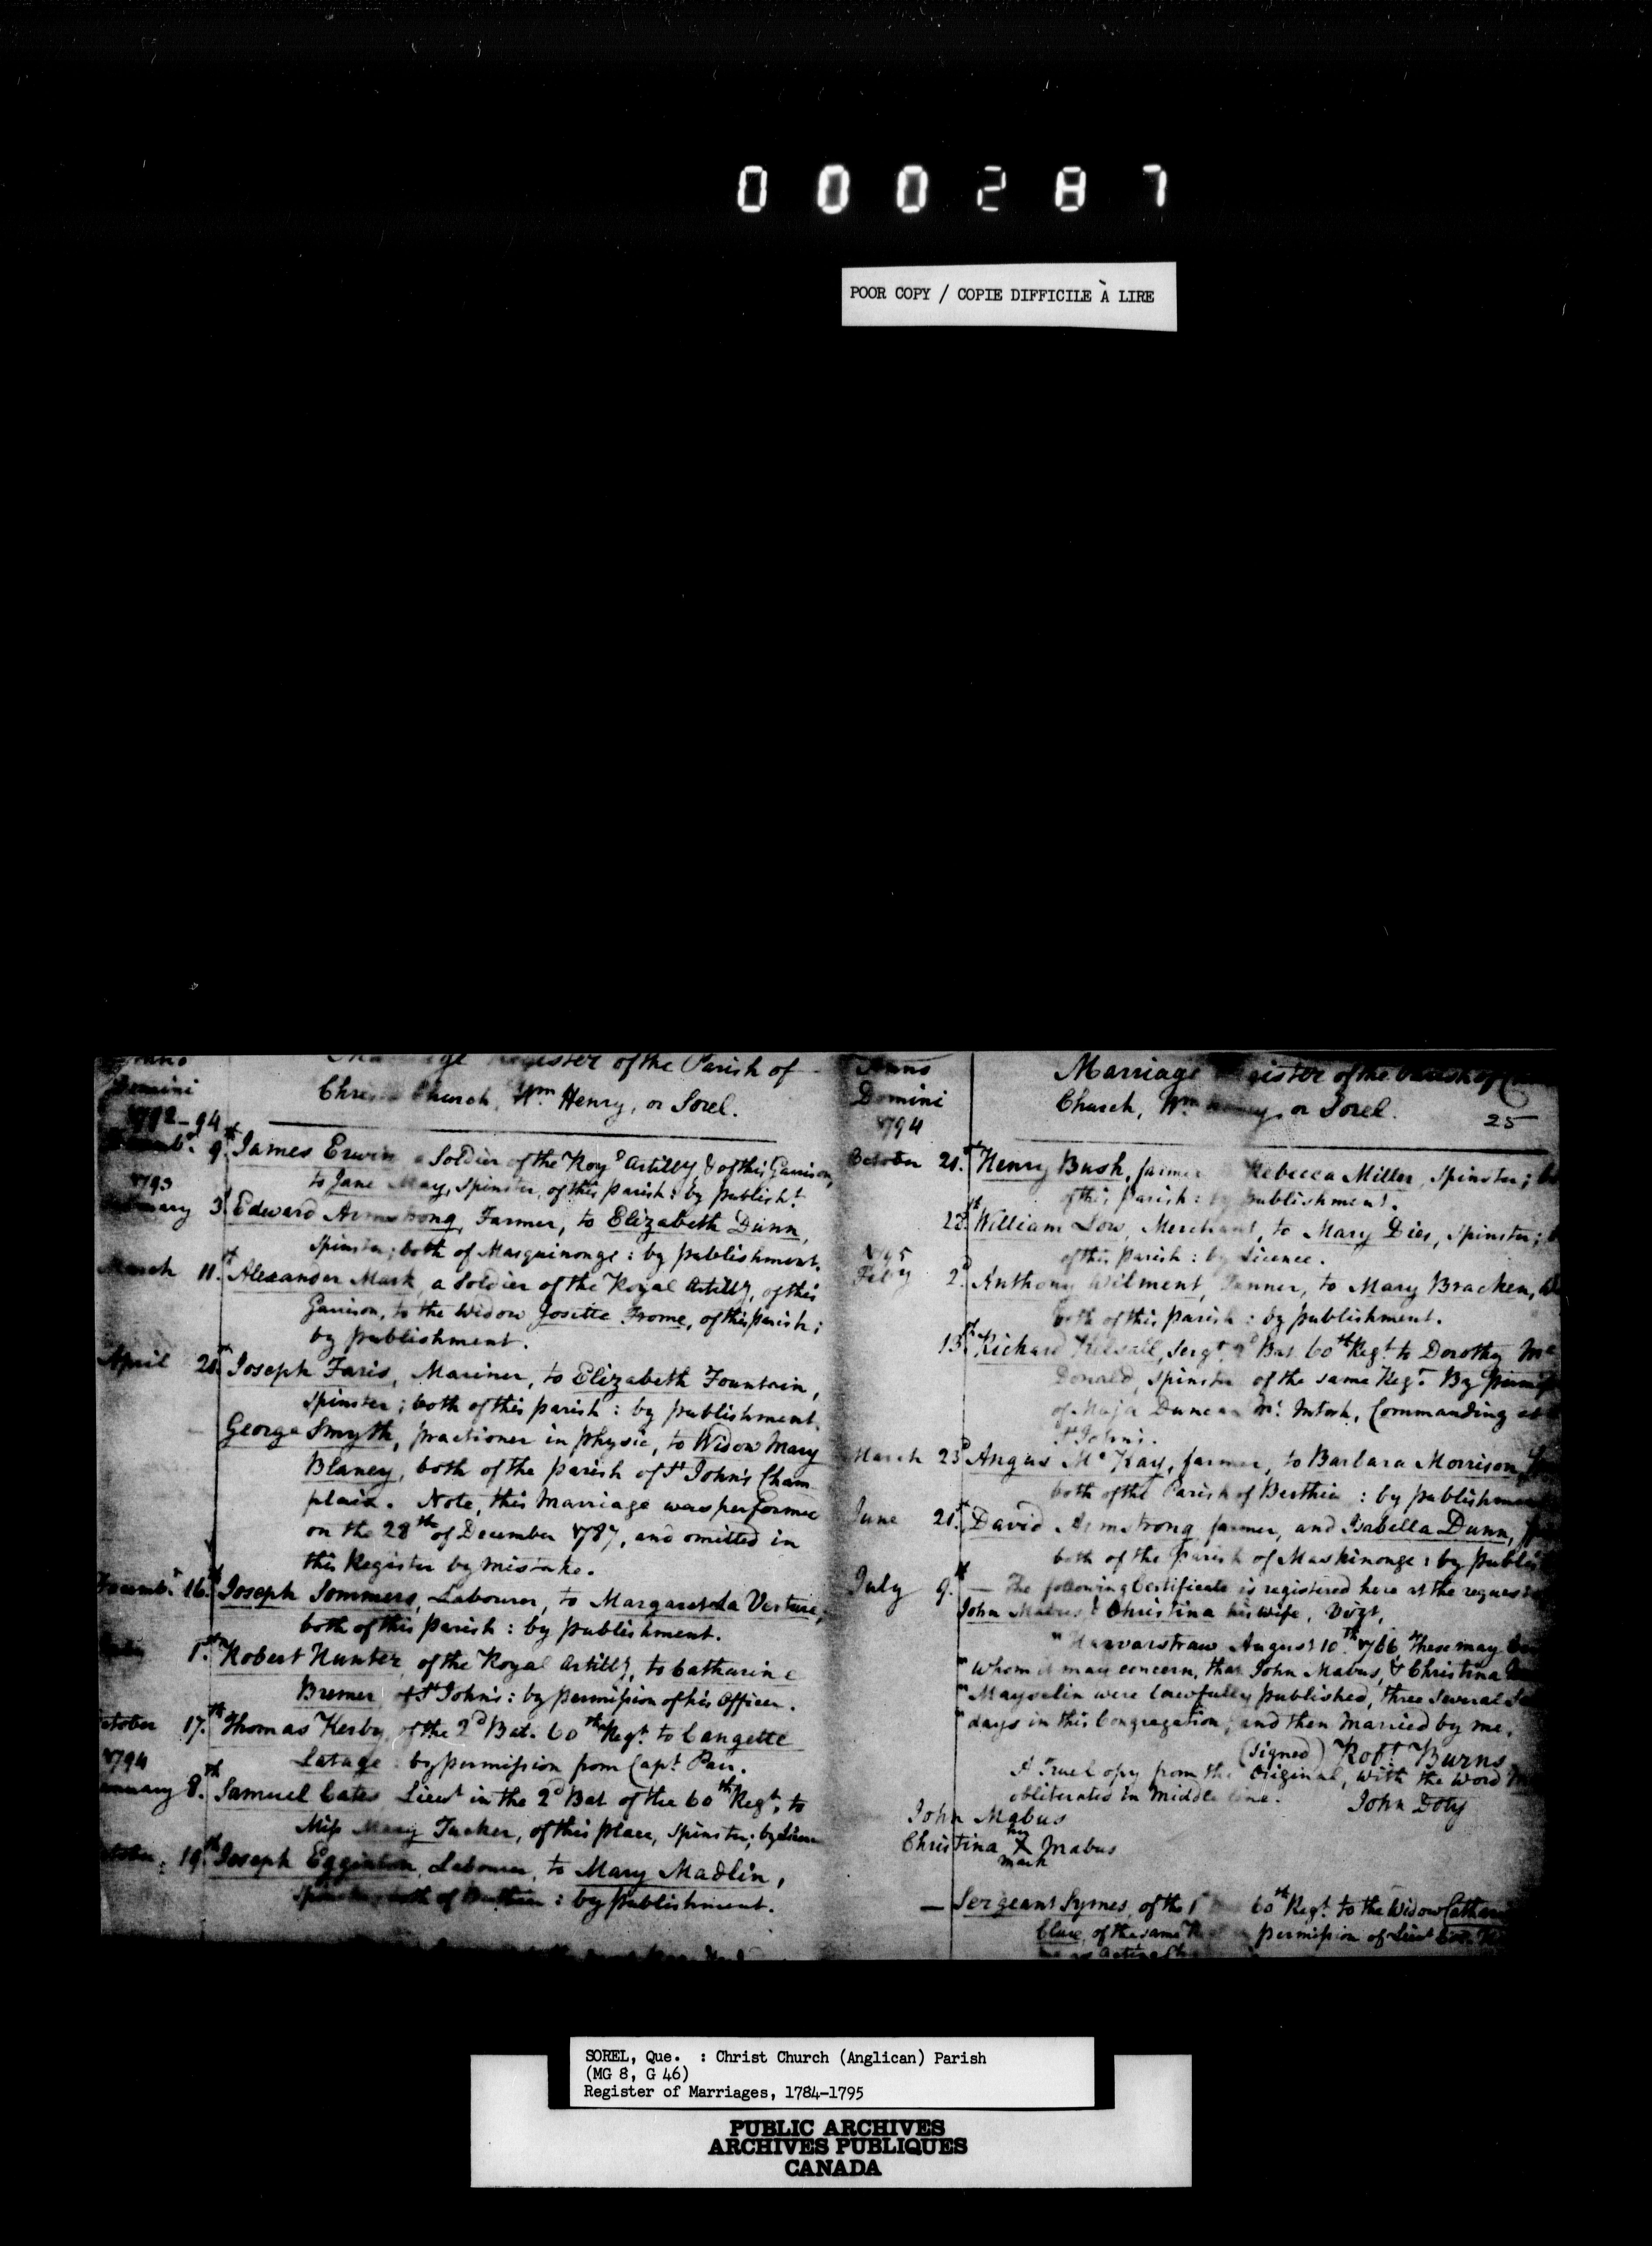 000287
POOR COPY / COPIE DIFFICILE À LIRE
Domini
1792-94
Register of the Parish of
Church, Wm Henry, or Sorel.
9. James Erwin a Soldier of the Roy. Artill'y & of this Garrison,
to Jane May, Spinster, of this parish: by publisht.
1793
3. Edward Armstrong, Farmer, to Elizabeth Dunn,
Spinster; both of Masquinonge: by publishment.
March 11. Alexander Mark, a Soldier of the Royal Artill'y, of this
Garrison, to the Widow Josette Frome, of this parish;
by publishment.
April 21. Joseph Faris, Mariner, to Elizabeth Fountain,
Spinster; both of this parish: by publishment.
George Smyth, practioner in physic, to Widow Mary
Blaney, both of the parish of St John's Cham
plain. Note, this Marriage was performed
on the 28th of December 1787, and omitted in
this Register by mistake.
16. Joseph Sommers, Labourer, to Margaret La Verture,
both of this parish: by publishment.
1st Robert Hunter, of the Royal Artill'y, to Catharine
Bremer, of St John's: by permission of his Officer.
October 17th Thomas Kerby, of the 2d Bat. 60th Regt. to Cangette
Latage: by permission from Capt. Parr.
1794
January 8th Samuel Cates Lieut in the 2d Bat of the 60th Regt. to
Miss Mary Tucker, of this place, Spinster; by
October 19th Joseph Egginton, Labourer, to Mary Madlin,
Spinster, both of Berthier: by publishment.
Anno
Domini
1794
Marriage Register of the Parish of
Church, Wm Henry, or Sorel.
25
October 21st Henry Bush, farmer Rebecca Miller, Spinster;
of this parish: by publishment.
William Low, Merchant, to Mary Dies, Spinster;
of this parish: by Licence.
1795
Feb'y 2d Anthony Wilment, Tanner, to Mary Bracken,
both of this parish: by publishment.
13. Richard Sergt. 2d Bat. 60th Regt. to Dorothy Mc
Donald, Spinster of the same Regt. By
of Major Duncan Mc. Intosh, Commanding at
St John's.
March 23d Angus Mc Kay, farmer, to Barbara Morrison,
both of the Parish of Berthier: by publishment
June 21st David Armstrong farmer, and Isabella Dunn,
both of the parish of Maskinonge: by
July 9. — The following Certificate is registered here at the request
John Mabus & Christina his wife, Vizt,
"Harvarstraw August 10th 1766 These may
"Whom it may concern, that John Mabus, & Christina
"Mayselin were lawfully published, three several
"days in this Congregation, and then Married by me,
(Signed) Robt. Burns
A True Copy from the Original, with the Word
obliterated in middle line. John Doty
John Mabus
Christina her X mark Mabus
— Sergeant Symes, of the 60th Regt. to the Widow
of the same permission of Lieut
SOREL, Que. : Christ Church (Anglican) Parish
(MG 8, G 46)
Register of Marriages, 1784-1795
PUBLIC ARCHIVES
ARCHIVES PUBLIQUES
CANADA